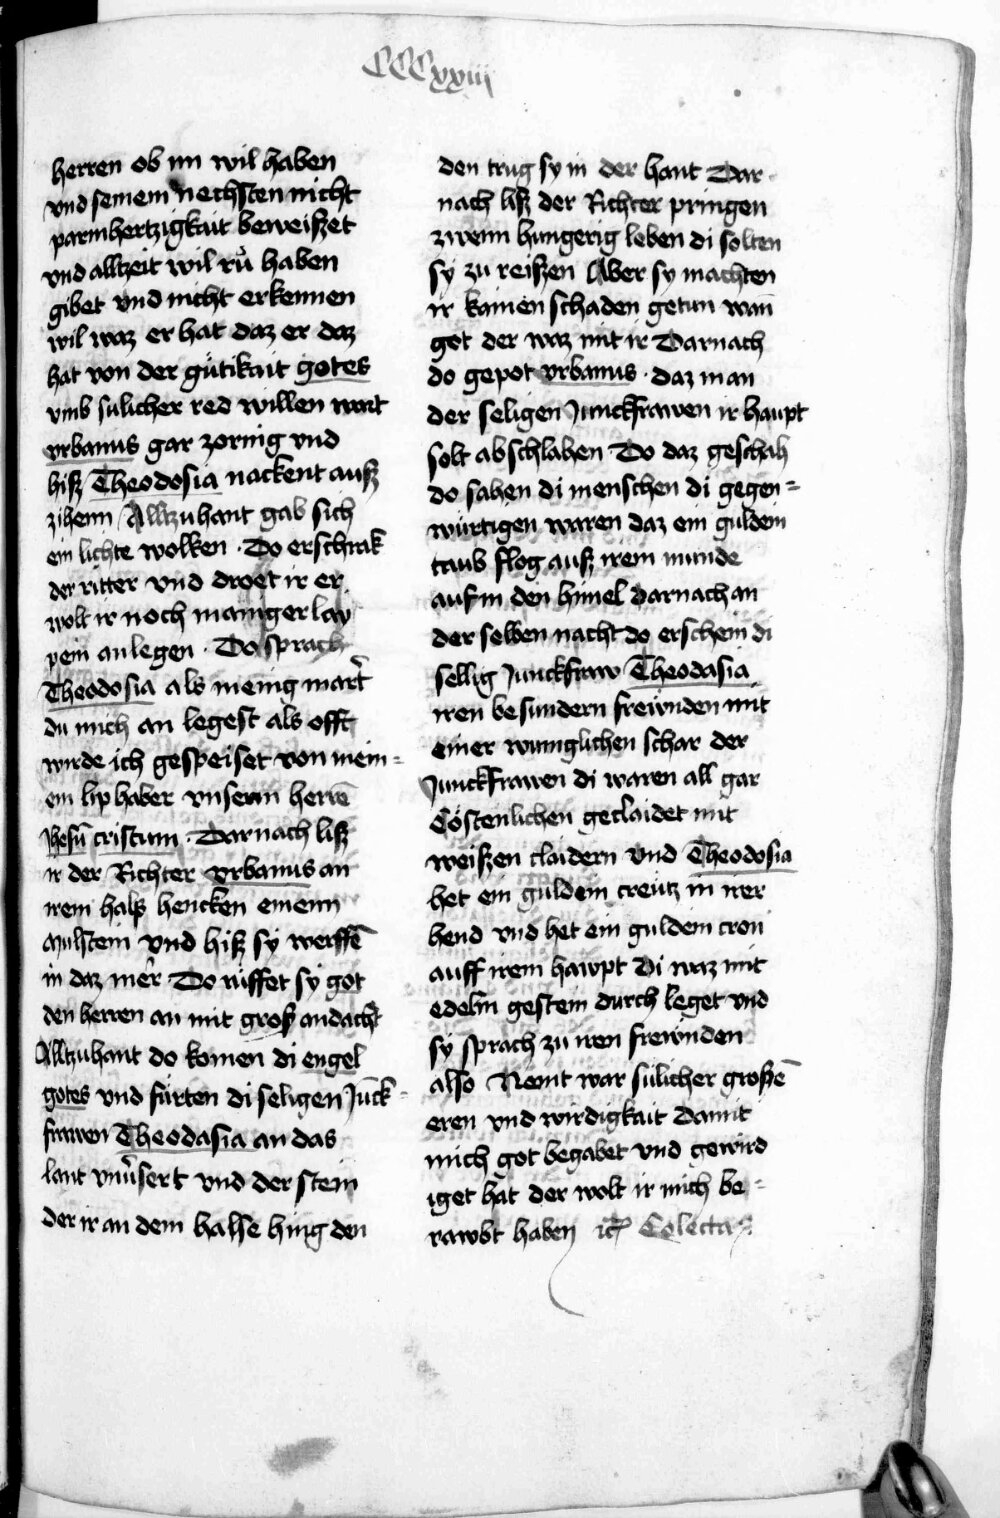 CCCxxiij
herren ob im wil haben
vnd seinem nechsten nicht
parmhertzigkait beweiszet
vnd alltzeit wil rů haben
gibet vnd nicht erkennen
wil waz er hat daz er daz
hat von der gütikait gotes
vmb sulicher red willen wart
vrbanus gar zornig vnd
hisz Theodosia nackent ausz
zihenn Alltzuhant gab sich
ein lichte wolken · Do erschrak
der ritter vnd droet ir er
wolt ir noch mainger lay
pein anlegen · Do sprach
Theodosia als menig mart̄
du mich an legest als offt
wirde ich gespeiset von mein=
em liphaber vnserm herrē
Jhesū cristum · Darnach lisz
ir der Richter vrbanus an
irem halsz hencken einenn
Mulstein vnd hisz sy werffē
in daz mer Do rüffet sy got
den herren an mit grosz andacht
Alltzuhant do komen di engel
gotes vnd fürten di seligen Jūck=
frawen Theodasia an das
lant vnv̄sert vnd der stein
der ir an dem halse hing den
den trug sy in der hant Dar
nach lisz der Richter pringen
zwenn hungerig leben di solten
sy zu reiszen Aber sy machten
ir kainen schaden getun wan̄
got der waz mit ir Darnach
do gepot vrbanus · daz man
der seligen Junckfrawen ir haupt
solt abschlahen Do daz geschah
do sahen di menschen di gegen=
würtigen waren daz ein guldein
taub flog ausz irem munde
auf in den himel Darnach an
der selben nacht do erschein di
sellig Junckfraw Theodasia
iren besundern freẅnden mit
einer wuniglichen schar der
Junckfrawen di waren all gar
Cöstenlichen geclaidet mit
weiszen claidern vnd Theodosia
het ein guldein creütz in irer
hend vnd het ein guldein cron
auff irem hawpt Di waz mit
edelm gestein durch leget vnd
sy sprach zu iren freẅnden
also Nemt war sulicher groszē
eren vnd wirdigkait Damit
mich got begabet vnd gewird
iget hat der wolt ir mich be=
rawbt haben Colecta